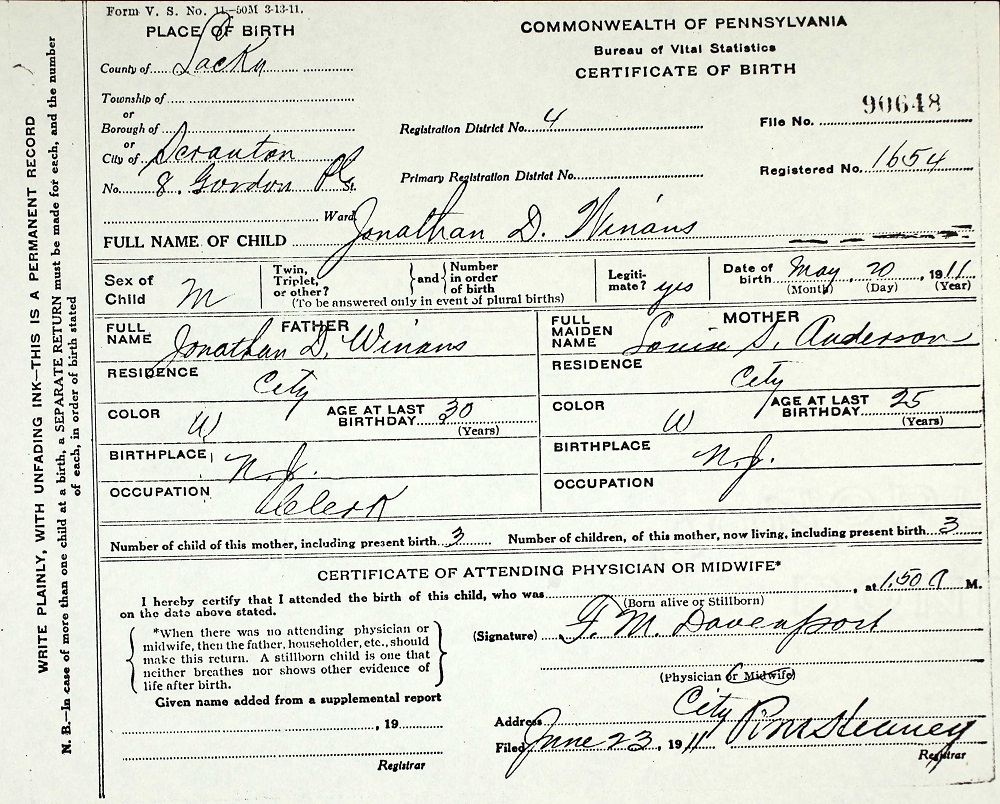 Form V. S. No. 11—50M 3-13-11.
PLACE OF BIRTH
County of Lacka
Township of
or
Borough of
or
City of Scranton
No. 8. Gordon Pl. St.
Ward
COMMONWEALTH OF PENNSYLVANIA
Bureau of Vital Statistics
CERTIFICATE OF BIRTH
90648
File No.
Registration District No. 4
Registered No. 1654
Primary Registration District No.
FULL NAME OF CHILD Jonathan D. Winans
Sex of Child M
Twin, Triplet, or other? } and { Number in order of birth
(To be answered only in event of plural births)
Legiti-mate? yes
Date of birth May 20 1911
(Month) (Day) (Year)
FATHER
FULL NAME Jonathan D. Winans
RESIDENCE City
COLOR W AGE AT LAST BIRTHDAY 30 (Years)
BIRTHPLACE N.J.
OCCUPATION Clerk
MOTHER
FULL MAIDEN NAME Louise S. Anderson
RESIDENCE City
COLOR W AGE AT LAST BIRTHDAY 25 (Years)
BIRTHPLACE N.J.
OCCUPATION
Number of child of this mother, including present birth 3 Number of children, of this mother, now living, including present birth 3
CERTIFICATE OF ATTENDING PHYSICIAN OR MIDWIFE*
I hereby certify that I attended the birth of this child, who was , at 1.50 A M.
on the date above stated. (Born alive or Stillborn)
*When there was no attending physician or
midwife, then the father, householder, etc., should
make this return. A stillborn child is one that
neither breathes nor shows other evidence of
life after birth.
(Signature) F. M. Davenport
(Physician or Midwife)
Given name added from a supplemental report
, 19
Registrar
Address City
Filed June 23, 1911
Registrar
WRITE PLAINLY, WITH UNFADING INK—THIS IS A PERMANENT RECORD
N. B.—In case of more than one child at a birth, a SEPARATE RETURN must be made for each, and the number
of each, in order of birth stated